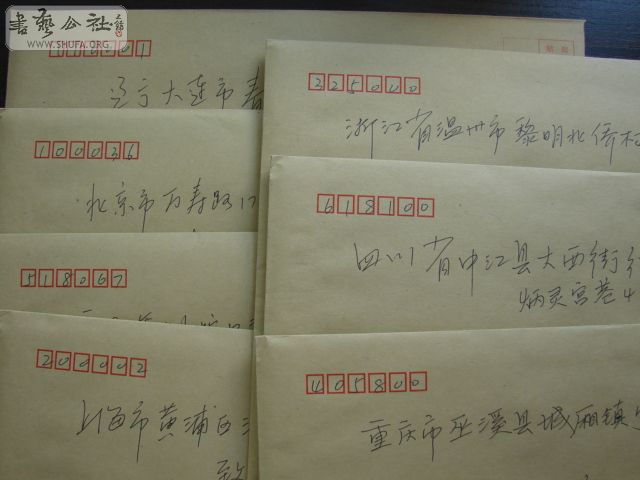 書藝公社
WWW.SHUFA.ORG
辽宁大连市春
100036
北京市万寿路17
518067
200002
上海市黄浦区
致
贴邮
225000
浙江省温州市黎明北侨村
618100
四川省中江县大西街
炳灵宫巷4
405800
重庆市巫溪县城厢镇